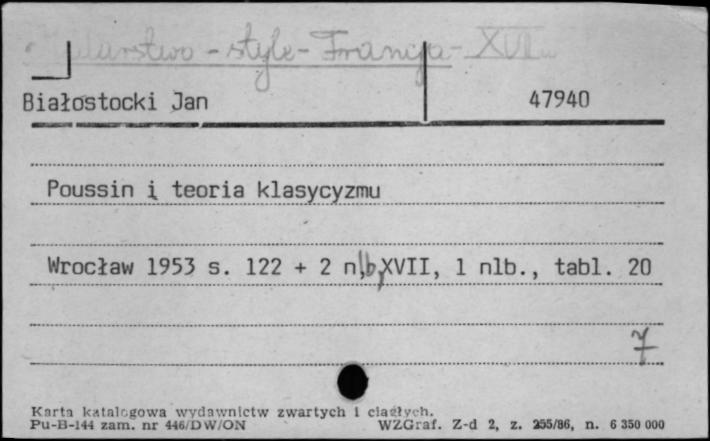 Malarstwo - style - Francja - XVII w
Białostocki Jan 47940
Poussin i teoria klasycyzmu
Wrocław 1953 s. 122 + 2 nlb, XVII, 1 nlb., tabl. 20
7
Karta katalogowa wydawnictw zwartych i ciągłych.
Pu-B-144 zam. nr 446/DW/ON WZGraf. Z-d 2, z. 255/86, n. 6 350 000